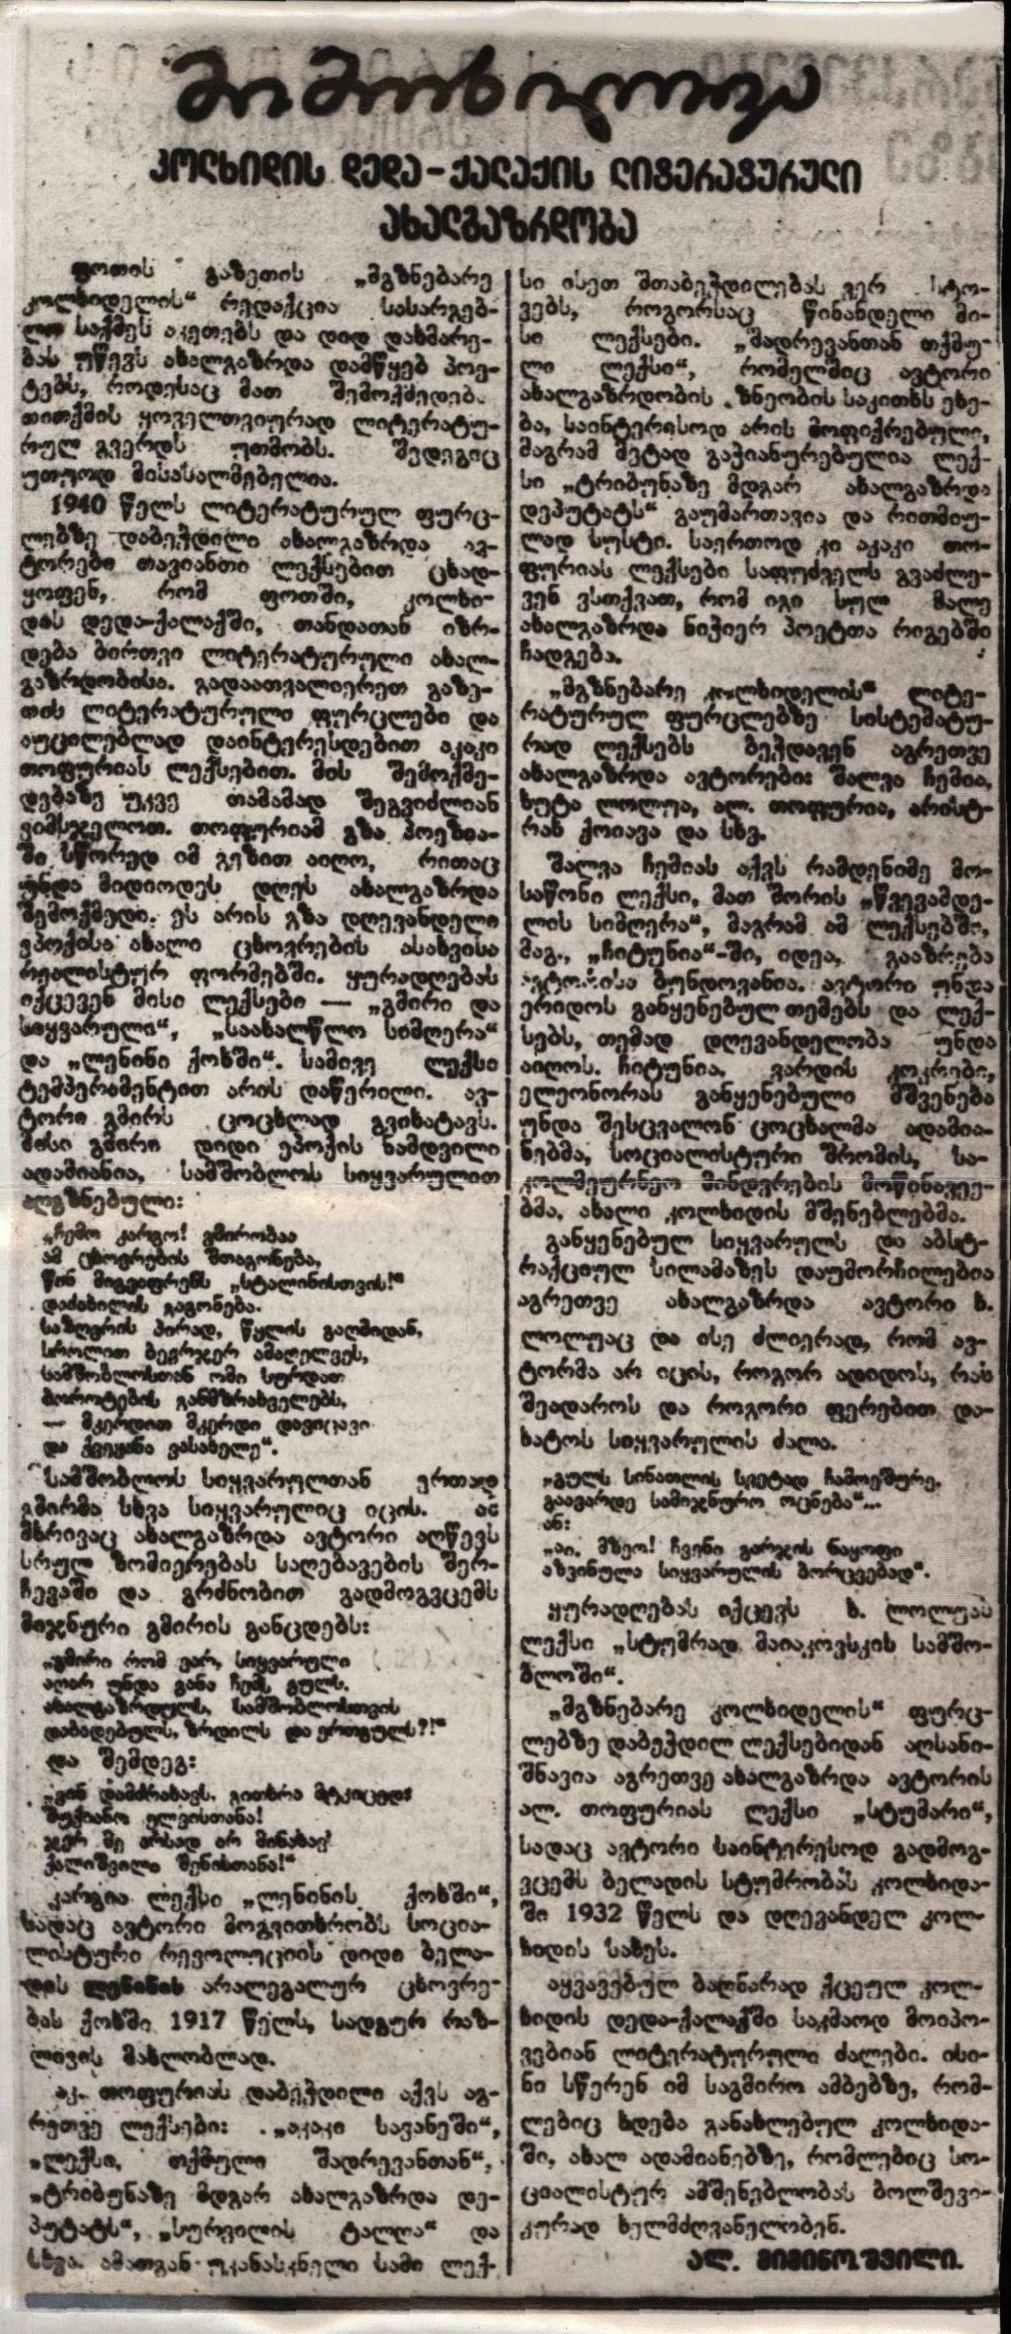 მიმოხილვა
კოლხიდის დედა-ქალაქის ლიტერატურული
ახალგაზრდობა
ფოთის გაზეთის „მგზნებარე
კოლხიდელის“ რედაქცია სასარგებ-
ლო საქმეს აკეთებს და დიდ დახმარე-
ბას უწევს ახალგაზრდა დამწყებ პოე-
ტებს, როდესაც მათ შემოქმედებ.
თითქმის ყოველთვიურად ლიტერატუ-
რულ გვერდს უთმობს. შედეგიც
უთუოდ მისასალმებელია.
1940 წელს ლიტერატურულ ფურც-
ლებზე დაბეჭდილი ახალგაზრდა ავ-
ტორები თავიანთი ლექსებით ცხად-
ყოფენ, რომ ფოთში, კოლხი-
დის დედა-ქალაქში, თანდათან იზრ-
დება ბირთვი ლიტერატურული ახალ-
გაზრდობისა. გადაათვალიერეთ გაზე-
თის ლიტერატურული ფურცლები და
აუცილებლად დაინტერესდებით აკაკი
თოფურიას ლექსებით. მის შემოქმე-
დებაზე უკვე თამამად შეგვიძლიან
ვიმსჯელოთ. თოფურიამ გზა პოეზია-
ში სწორედ იმ გეზით აიღო, რითაც
უნდა მიდიოდეს დღეს ახალგაზრდა
შემოქმედი. ეს არის გზა დღევანდელი
ეპოქისა ახალი ცხოვრების ასახვისა
რეალისტურ ფორმებში. ყურადღებას
იქცევენ მისი ლექსები — „გმირი და
სიყვარული“, „საახალწლო სიმღერა“
და „ლენინი ქოხში“. სამივე ლექსი
ტემპერამენტით არის დაწერილი. ავ-
ტორი გმირს ცოცხლად გვიხატავს.
მისი გმირი დიდი ეპოქის ნამდვილი
ადამიანია, სამშობლოს სიყვარულით
აღგზნებული:
„ჩემო კარგო! გმირობაა
ამ ცხოვრების შთაგონება,
წინ მიგვაფრენს „სტალინისთვის!“
დაძახილის გაგონება.
საზღვრის პირად, წყლის გაღმიდან,
სროლით ბევრჯერ ამაღელვეს,
სამშობლოსთან ომი სურდათ
ბოროტების განმზრახველებს,
— მკერდით მკერდი დავიცავი
და ქვეყანა ვასახელე“.
სამშობლოს სიყვარულთან ერთად
გმირმა სხვა სიყვარულიც იცის. ამ
მხრივაც ახალგაზრდა ავტორი აღწევს
სრულ ზომიერებას საღებავების შერ-
ჩევაში და გრძნობით გადმოგვცემს
მიჯნური გმირის განცდებს:
„გმირი რომ ვარ, სიყვარული
აღარ უნდა განა ჩემს გულს.
ახალგაზრდულს, სამშობლოსთვის
დაბადებულს, ზრდილს და ერთგულს?!“
და შემდეგ:
„ვინ დამძრახავს, ვითხრა მტკიცედ:
შუქიანო ელვისთანა!
ჯერ მე არსად არ მინახავ
ქალიშვილი შენისთანა!“
კარგია ლექსი „ლენინის ქოხში“,
სადაც ავტორი მოგვითხრობს სოცია-
ლისტური რევოლუციის დიდი ბელა-
დის ლენინის არალეგალურ ცხოვრე-
ბას ქოხში 1917 წელს, სადგურ რაზ-
ლივის მახლობლად.
აკ. თოფურიას დაბეჭდილი აქვს აგ-
რეთვე ლექსები: „აკაკი სავანეში“,
„ლექსი, თქმული შადრევანთან“,
„ტრიბუნაზე მდგარ ახალგაზრდა დე-
პუტატს“, „სურვილის ტალღა“ და
სხვა. ამათგან უკანასკნელი სამი ლექ-
სი ისეთ შთაბეჭდილებას ვერ სტო-
ვებს, როგორსაც წინანდელი მი-
სი ლექსები. „შადრევანთან თქმუ-
ლი ლექსი“, რომელშიც ავტორი
ახალგაზრდობის ზნეობის საკითხს ეხე-
ბა, საინტერესოდ არის მოფიქრებული,
მაგრამ მეტად გაჭიანურებულია ლექ-
სი „ტრიბუნაზე მდგარ ახალგაზრდა
დეპუტატს“ გაუმართავია და რითმიუ-
ლად სუსტი. საერთოდ კი აკაკი თო-
ფურიას ლექსები საფუძველს გვაძლე-
ვენ ვსთქვათ, რომ იგი სულ მალე
ახალგაზრდა ნიჭიერ პოეტთა რიგებში
ჩადგება.
„მგზნებარე კოლხიდელის“ ლიტე-
რატურულ ფურცლებზე სისტემატუ-
რად ლექსებს ბეჭდავენ აგრეთვე
ახალგაზრდა ავტორები: შალვა ჩემია,
ხუტა ლოლუა, ალ. თოფურია, არისტ-
რახ ქოიავა და სხვ.
შალვა ჩემიას აქვს რამდენიმე მო-
საწონი ლექსი, მათ შორის „წვევამდე-
ლის სიმღერა“, მაგრამ ამ ლექსებში,
მაგ., „ჩიტუნია“-ში, იდეა, გააზრება
ავტორისა ბუნდოვანია. ავტორი უნდა
ერიდოს განყენებულ თემებს და ლექ-
სებს, თემად დღევანდელობა უნდა
აიღოს. ჩიტუნია, ვარდის კოკრები,
ელეონორას განყენებული მშვენება
უნდა შესცვალონ ცოცხალმა ადამია-
ნებმა, სოციალისტური შრომის, სა-
კოლმეურნეო მინდვრების მოწინავეე-
ბმა, ახალი კოლხიდის მშენებლებმა.
განყენებულ სიყვარულს და აბსტ-
რაქციულ სილამაზეს დაუმორჩილებია
აგრეთვე ახალგაზრდა ავტორი ხ.
ლოლუაც და ისე ძლიერად, რომ ავ-
ტორმა არ იცის, როგორ ადიდოს, რას
შეადაროს და როგორი ფერებით და-
ხატოს სიყვარულის ძალა.
„გულს სინათლის სვეტად ჩამოეშურე,
გაავარდე სამიჯნურო ოცნება“...
ან:
„აი, მზეო! ჩვენი გარჯის ნაყოფი
აზვინულა სიყვარულის ბორცვებად“.
ყურადღებას იქცევს ხ. ლოლუას
ლექსი „სტუმრად მაიაკოვსკის სამშო-
ბლოში“.
„მგზნებარე კოლხიდელის“ ფურც-
ლებზე დაბეჭდილ ლექსებიდან აღსანი-
შნავია აგრეთვე ახალგაზრდა ავტორის
ალ. თოფურიას ლექსი „სტუმარი“,
სადაც ავტორი საინტერესოდ გადმოგ-
ვცემს ბელადის სტუმრობას კოლხიდა-
ში 1932 წელს და დღევანდელ კოლ-
ხიდის სახეს.
აყვავებულ ბაღნარად ქცეულ კოლ-
ხიდის დედა-ქალაქში საკმაოდ მოიპო-
ვებიან ლიტერატურული ძალები. ისი-
ნი სწერენ იმ საგმირო ამბებზე, რომ-
ლებიც ხდება განახლებულ კოლხიდა-
ში, ახალ ადამიანებზე, რომლებიც სო-
ციალისტურ ამშენებლობას ბოლშევი-
კურად ხელმძღვანელობენ.
ალ. მიმინოშვილი.